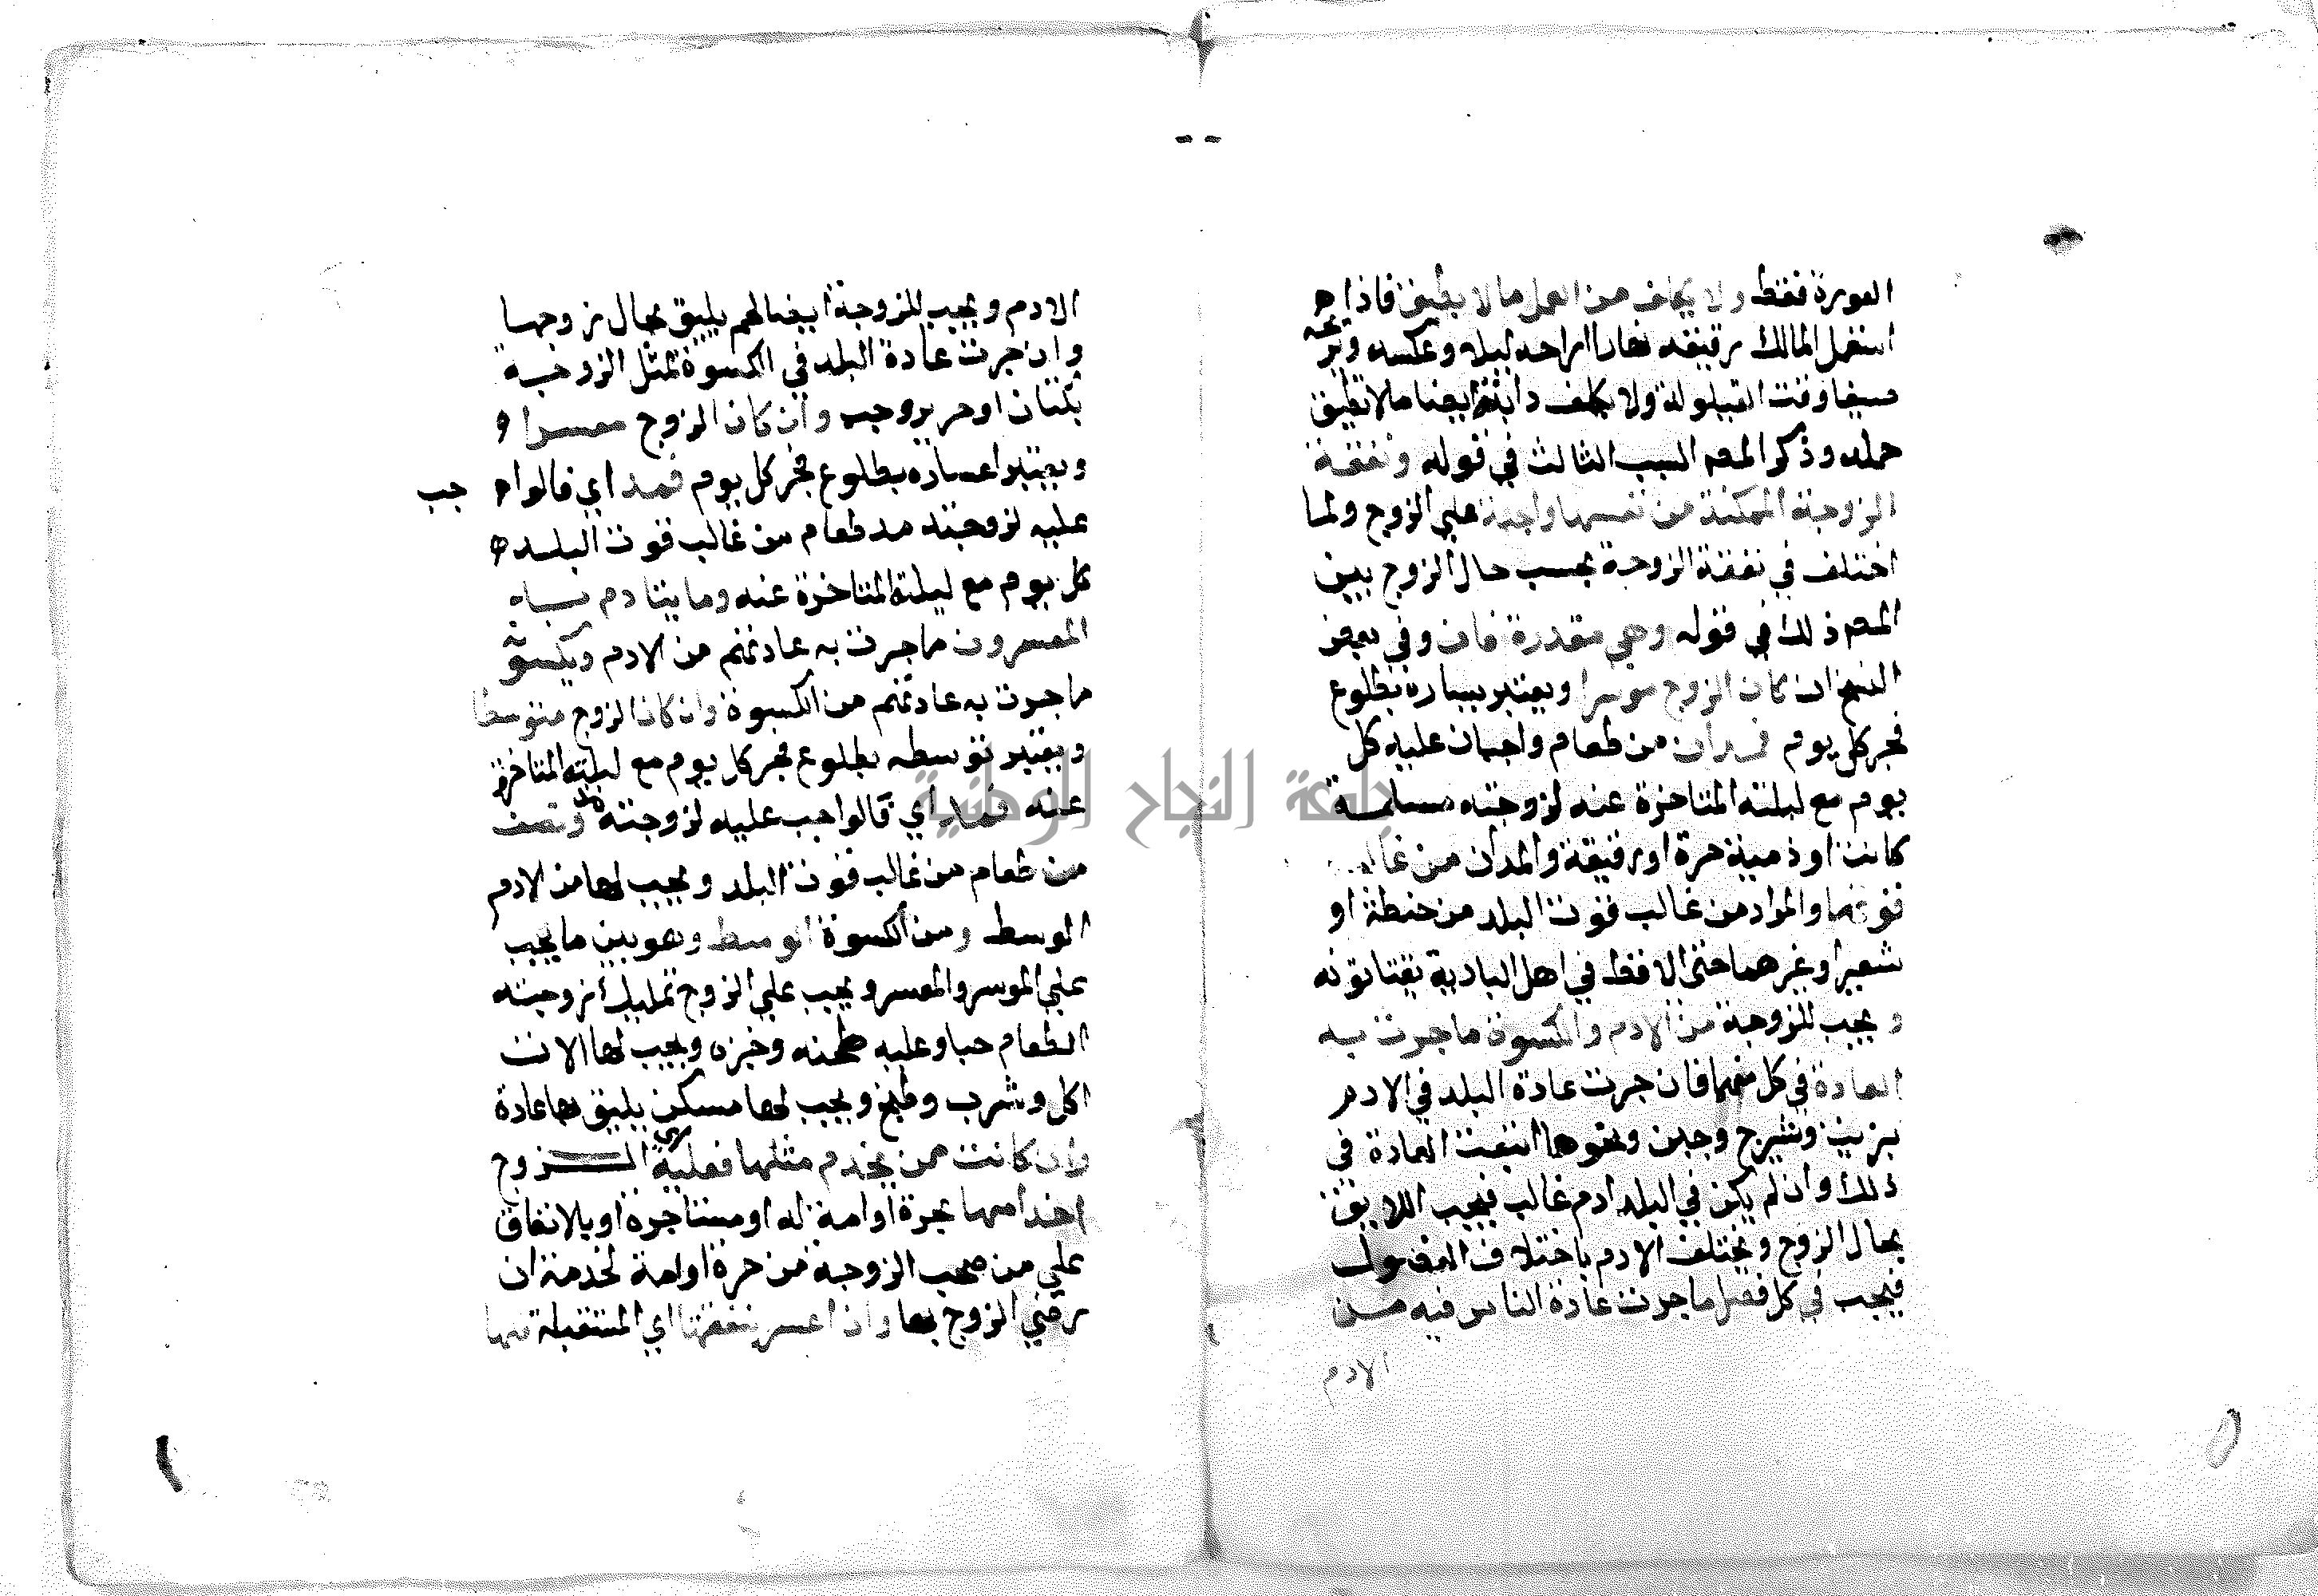 العورة فقط ولا يكلف من العمل ما لا يطيق فاذا
استعمل المالك رقيقه نهارا اراحه ليلا وعكسه ويريحه
صيفا وقت القيلولة ولا يكلف دابته ايضا ما لا تطيق
حمله وذكر المص السبب الثالث في قوله ونفقة
الزوجة الممكنة من نفسها واجبة علي الزوج ولما
اختلف في نفقة الزوجة بحسب حال الزوج بين
المص ذلك في قوله وهي مقدرة فان وفي بعض
النسخ ان كان الزوج موسرا ويعتبر يساره بطلوع
فجر كل يوم فمدان من طعام واجبان عليه كل
يوم مع ليلته المتاخرة عنه لزوجته مسلمة
كانت او ذمية حرة او رقيقة والمدان من غالب
قوتها والمراد من غالب قوت البلد من حنطة او
شعير او غيرهما حتى الاقط في اهل البادية يقتاتونه
و يجب للزوجة من الادم والكسوة ماجرت به
العادة في كل منهما فان جرت عادة البلد في الادم
بزيت وشيرج وجبن ونحوها اتبعت العادة في
ذلك وان لم يكن في البلد ادم غالب فيجب اللايق
بحال الزوج ويختلف الادم باختلاف الفصول
فيجب في كل فصل ماجرت عادة الناس فيه من
الادم
الادم ويجب للزوجة ايضا لحم يليق بحال زوجها
وان جرت عادة البلد في الكسوة لمثل الزوجة
بكتان او حرير وجب وان كان الزوج معسرا
ويعتبر اعساره بطلوع فجر كل يوم فمد اي فالواجب
عليه لزوجته مد طعام من غالب قوت البلد
كل يوم مع ليلته المتاخرة عنه وما يتادم به
المعسرون ماجرت به عادتهم من الادم ويكسوته
ماجرت به عادتهم من الكسوة وان كان الزوج متوسطا
ويعتبر توسطه بطلوع فجر كل يوم مع ليلته المتاخرة
عنه فمد اي فالواجب عليه لزوجته مد ونصف
من طعام من غالب قوت البلد ويجب لها من الادم
الوسط ومن الكسوة الوسط وهو بين ما يجب
علي الموسر والمعسر ويجب علي الزوج تمليك زوجته
الطعام حبا وعليه طحنه وخبزه ويجب لها الات
اكل وشرب وطبخ ويجب لها مسكن يليق بها عادة
وان كانت ممن يخدم مثلها فعليه اي الزوج
اخدامها بحرة او امة له او مستاجره او بالانفاق
علي من صحب الزوجة من حرة او امة لخدمة ان
رضي الزوج بها وان اعسر بنفقتها اي المستقبلة